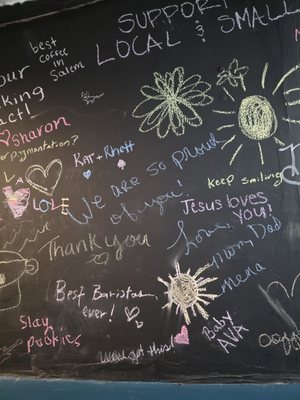 SUPPORT
LOCAL & SMALL
best
coffee
in
Salem
our
king
act!
sharon
pigmentation?
KAT + Rhett
We are so proud
of you!
LOVE
Keep smiling
Jesus loves
you!
Thank you
Love,
Mom + Dad
mema
Best Baristas
ever!
Slay
pookie
Baby
AVA